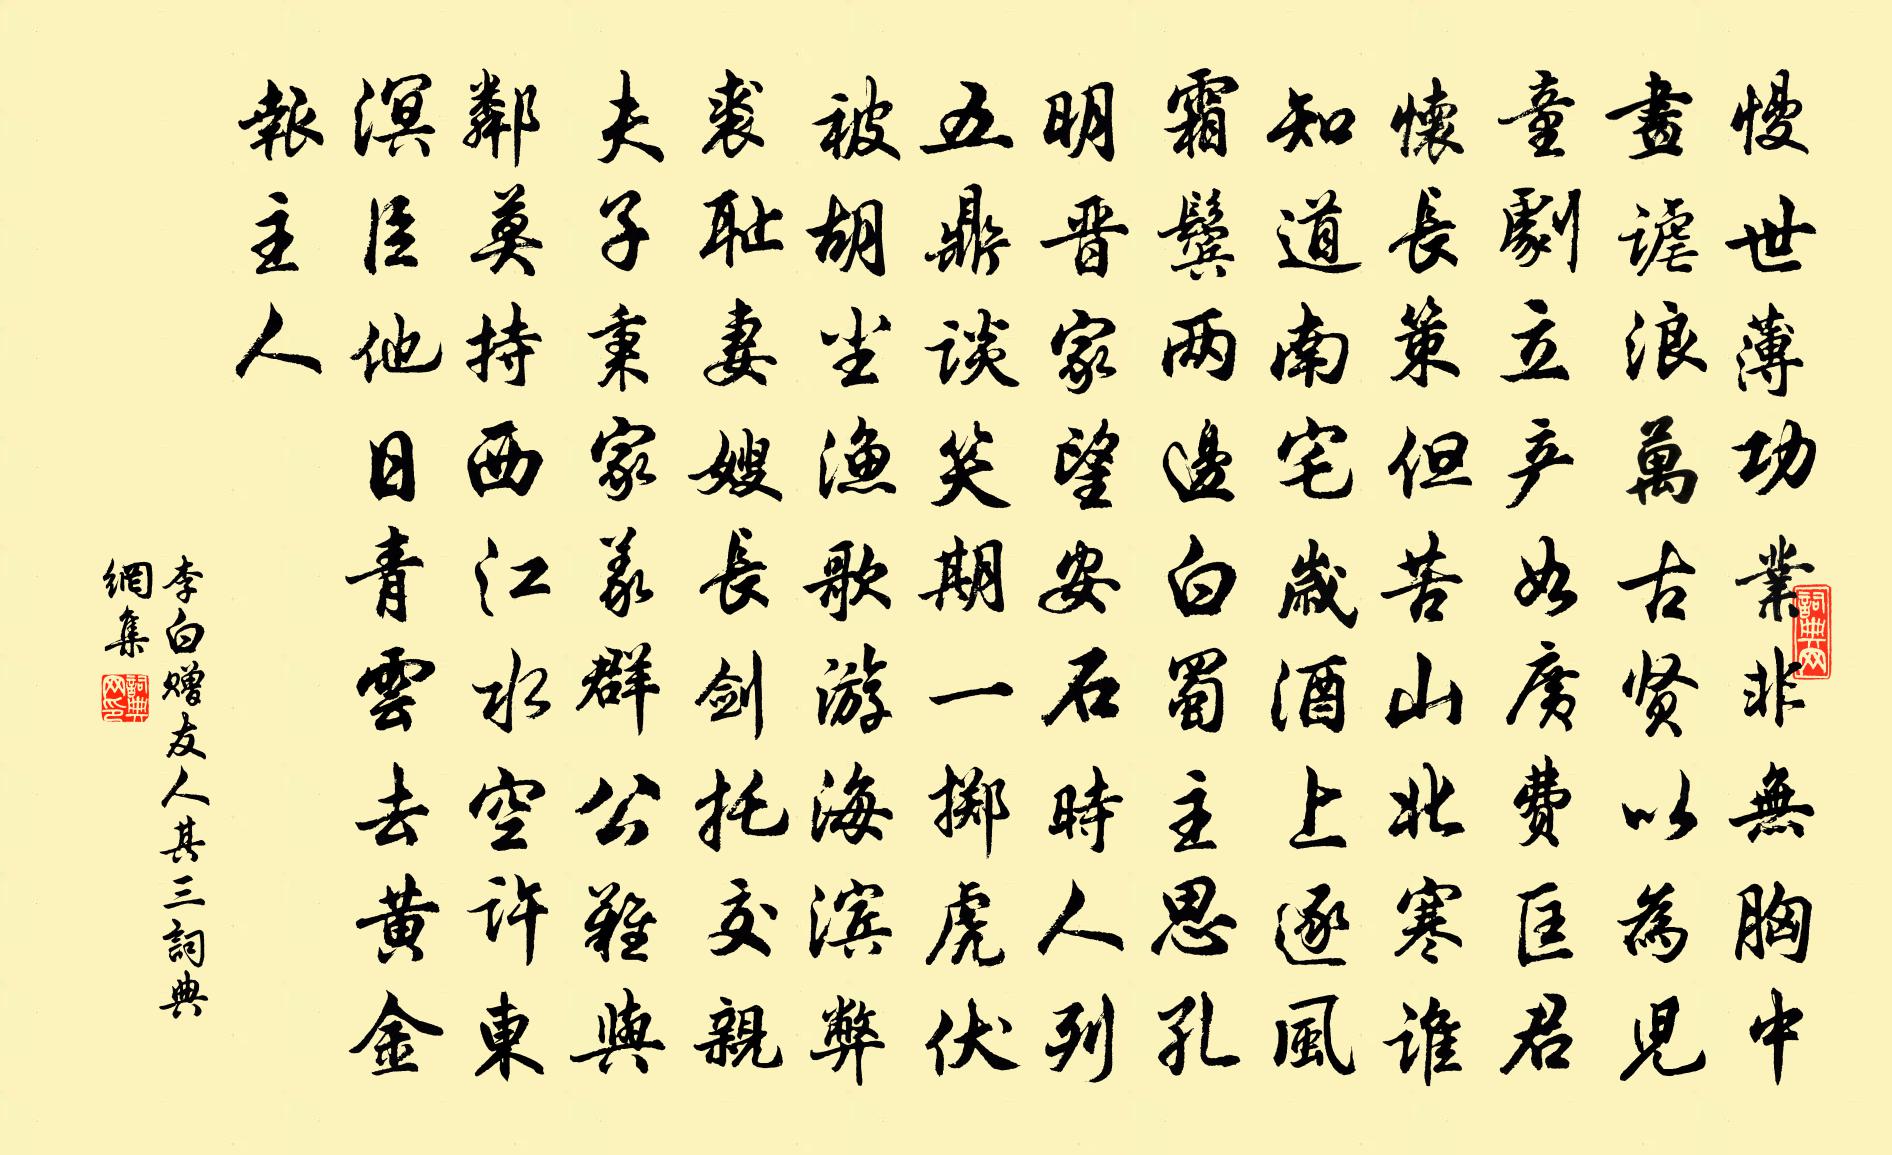 慢世薄功業非無胸中
畫謔浪萬古贤以為児
童劇立产如廣費匡君
懷長策但苦山北寒誰
知道南宅歲酒上逐風
霜鬓兩邊白蜀主思孔
明晋家望安石時人列
五鼎談笑期一掷虎伏
被胡尘渔歌游海滨弊
裘耻妻嫂長剑托交親
夫子秉家義群公難與
鄰莫持西江水空許東
溟臣他日青雲去黄金
報主人
李白赠友人其三詞典
網集
詞典网
詞典网印